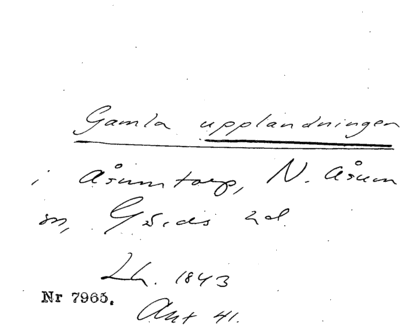 Gamla upplandningen
i Åsumtorp, N. Åsum
sn, Gärds hd.
Lh. 1843
Nr 7965.
Akt 41.